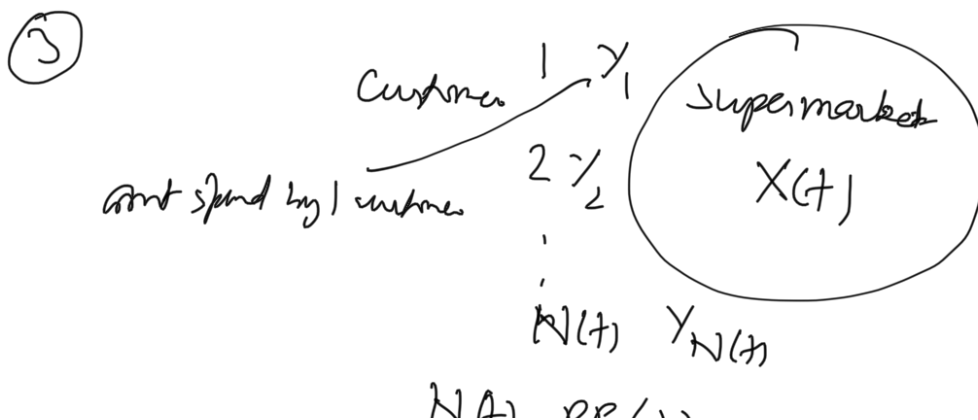 3
Customer 1 Y1
supermarket
2 Y2
X(t)
amt spend by 1 customer
.
.
N(t) YN(t)
N(t) PP(λ)